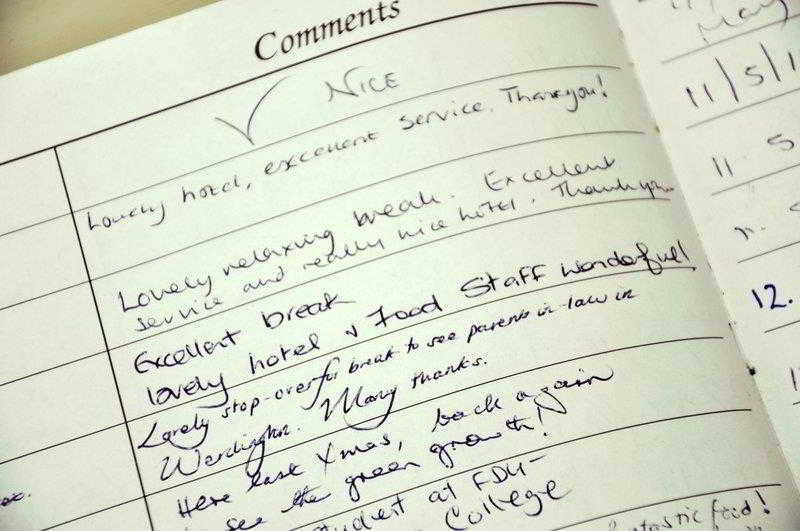 Comments
✓ NICE
Lovely hotel, excellent service. Thankyou!
Lovely relaxing break. Excellent
service and really nice hotel. Thankyou
Excellent break
lovely hotel & Food Staff wonderful!
Lovely stop-over for break to see parents-in-law in
Many thanks.
Here last Xmas, back again
see the green growth!
student at FDU-
College
fantastic food!
May
11/5/1
11 5
12.